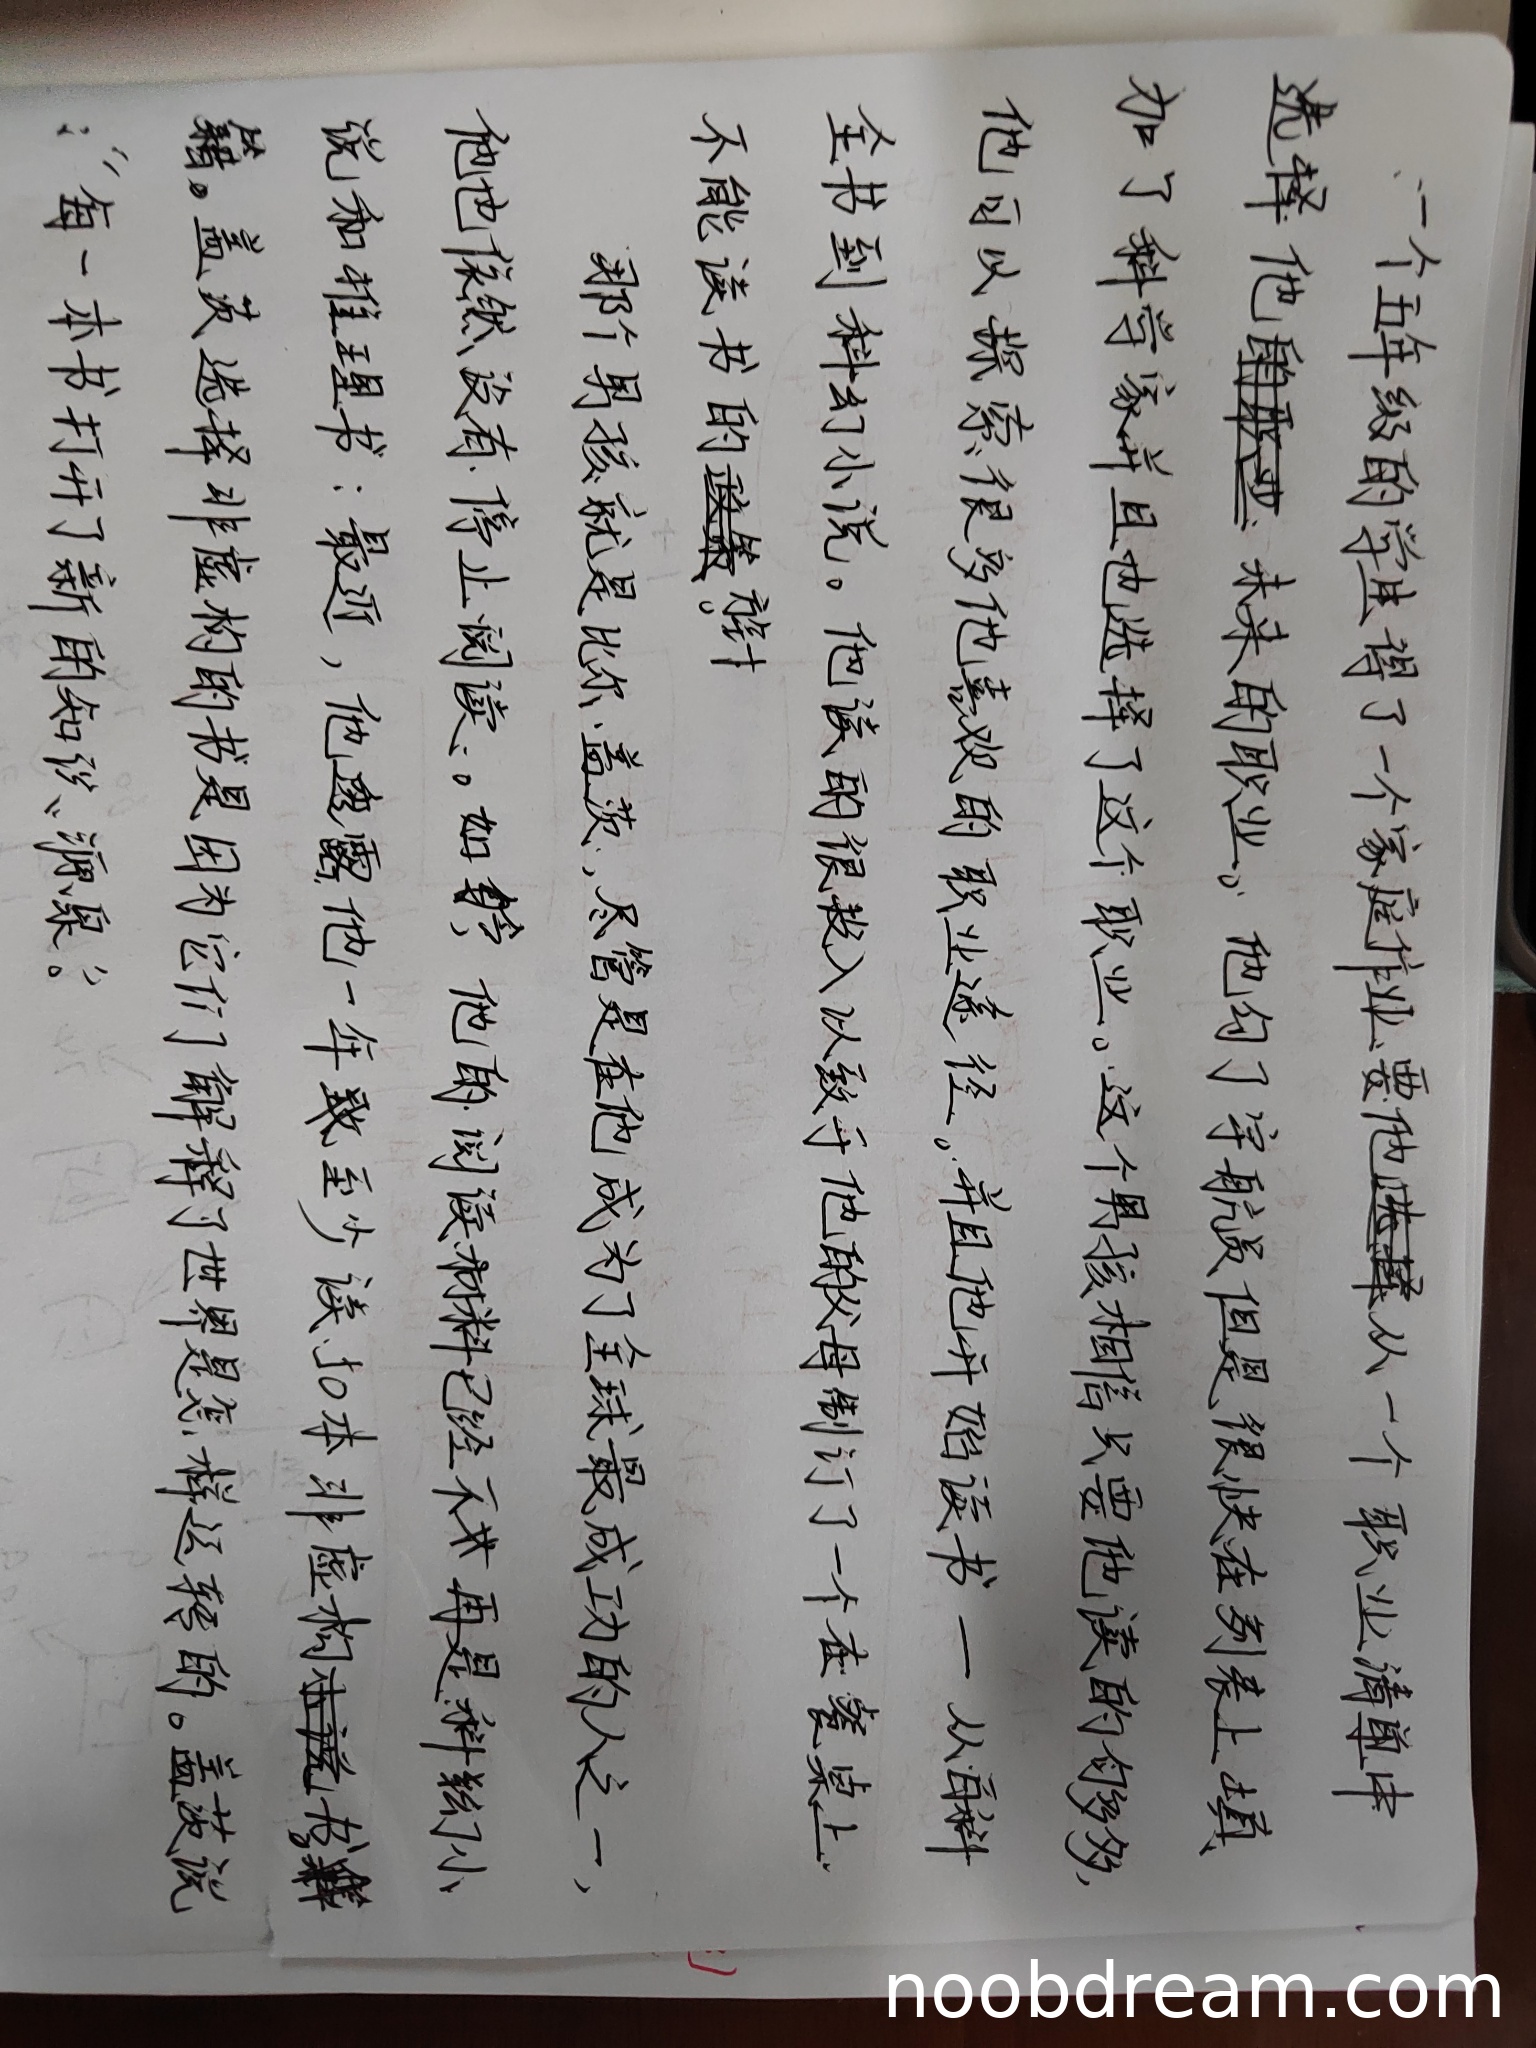 一个五年级的学生得了一个家庭作业要他从一个职业清单中
选择他未来的职业。他勾了宇航员但是很快在列表上填
加了科学家并且也选择了这个职业。这个男孩相信只要他读的句多多,
他可以探索很多他喜欢的职业途径。并且他开始读书 — 从百科
全书到科幻小说。他读的很投入以致于他的父母制订了一个在餐桌上
不能读书的方针。
那个男孩就是比尔·盖茨,尽管是在他成为了全球最成功的人之一,
他也依然没有停止阅读。如今他的阅读材料已经不再是科幻小
说和推理书:最近,他透露他一年至少读50本非虚构书
籍。盖茨选择非虚构的书是因为它们解释了世界是怎样运转的。盖茨说
:“每一本书打开了新的知识源泉”。
noobdream.com